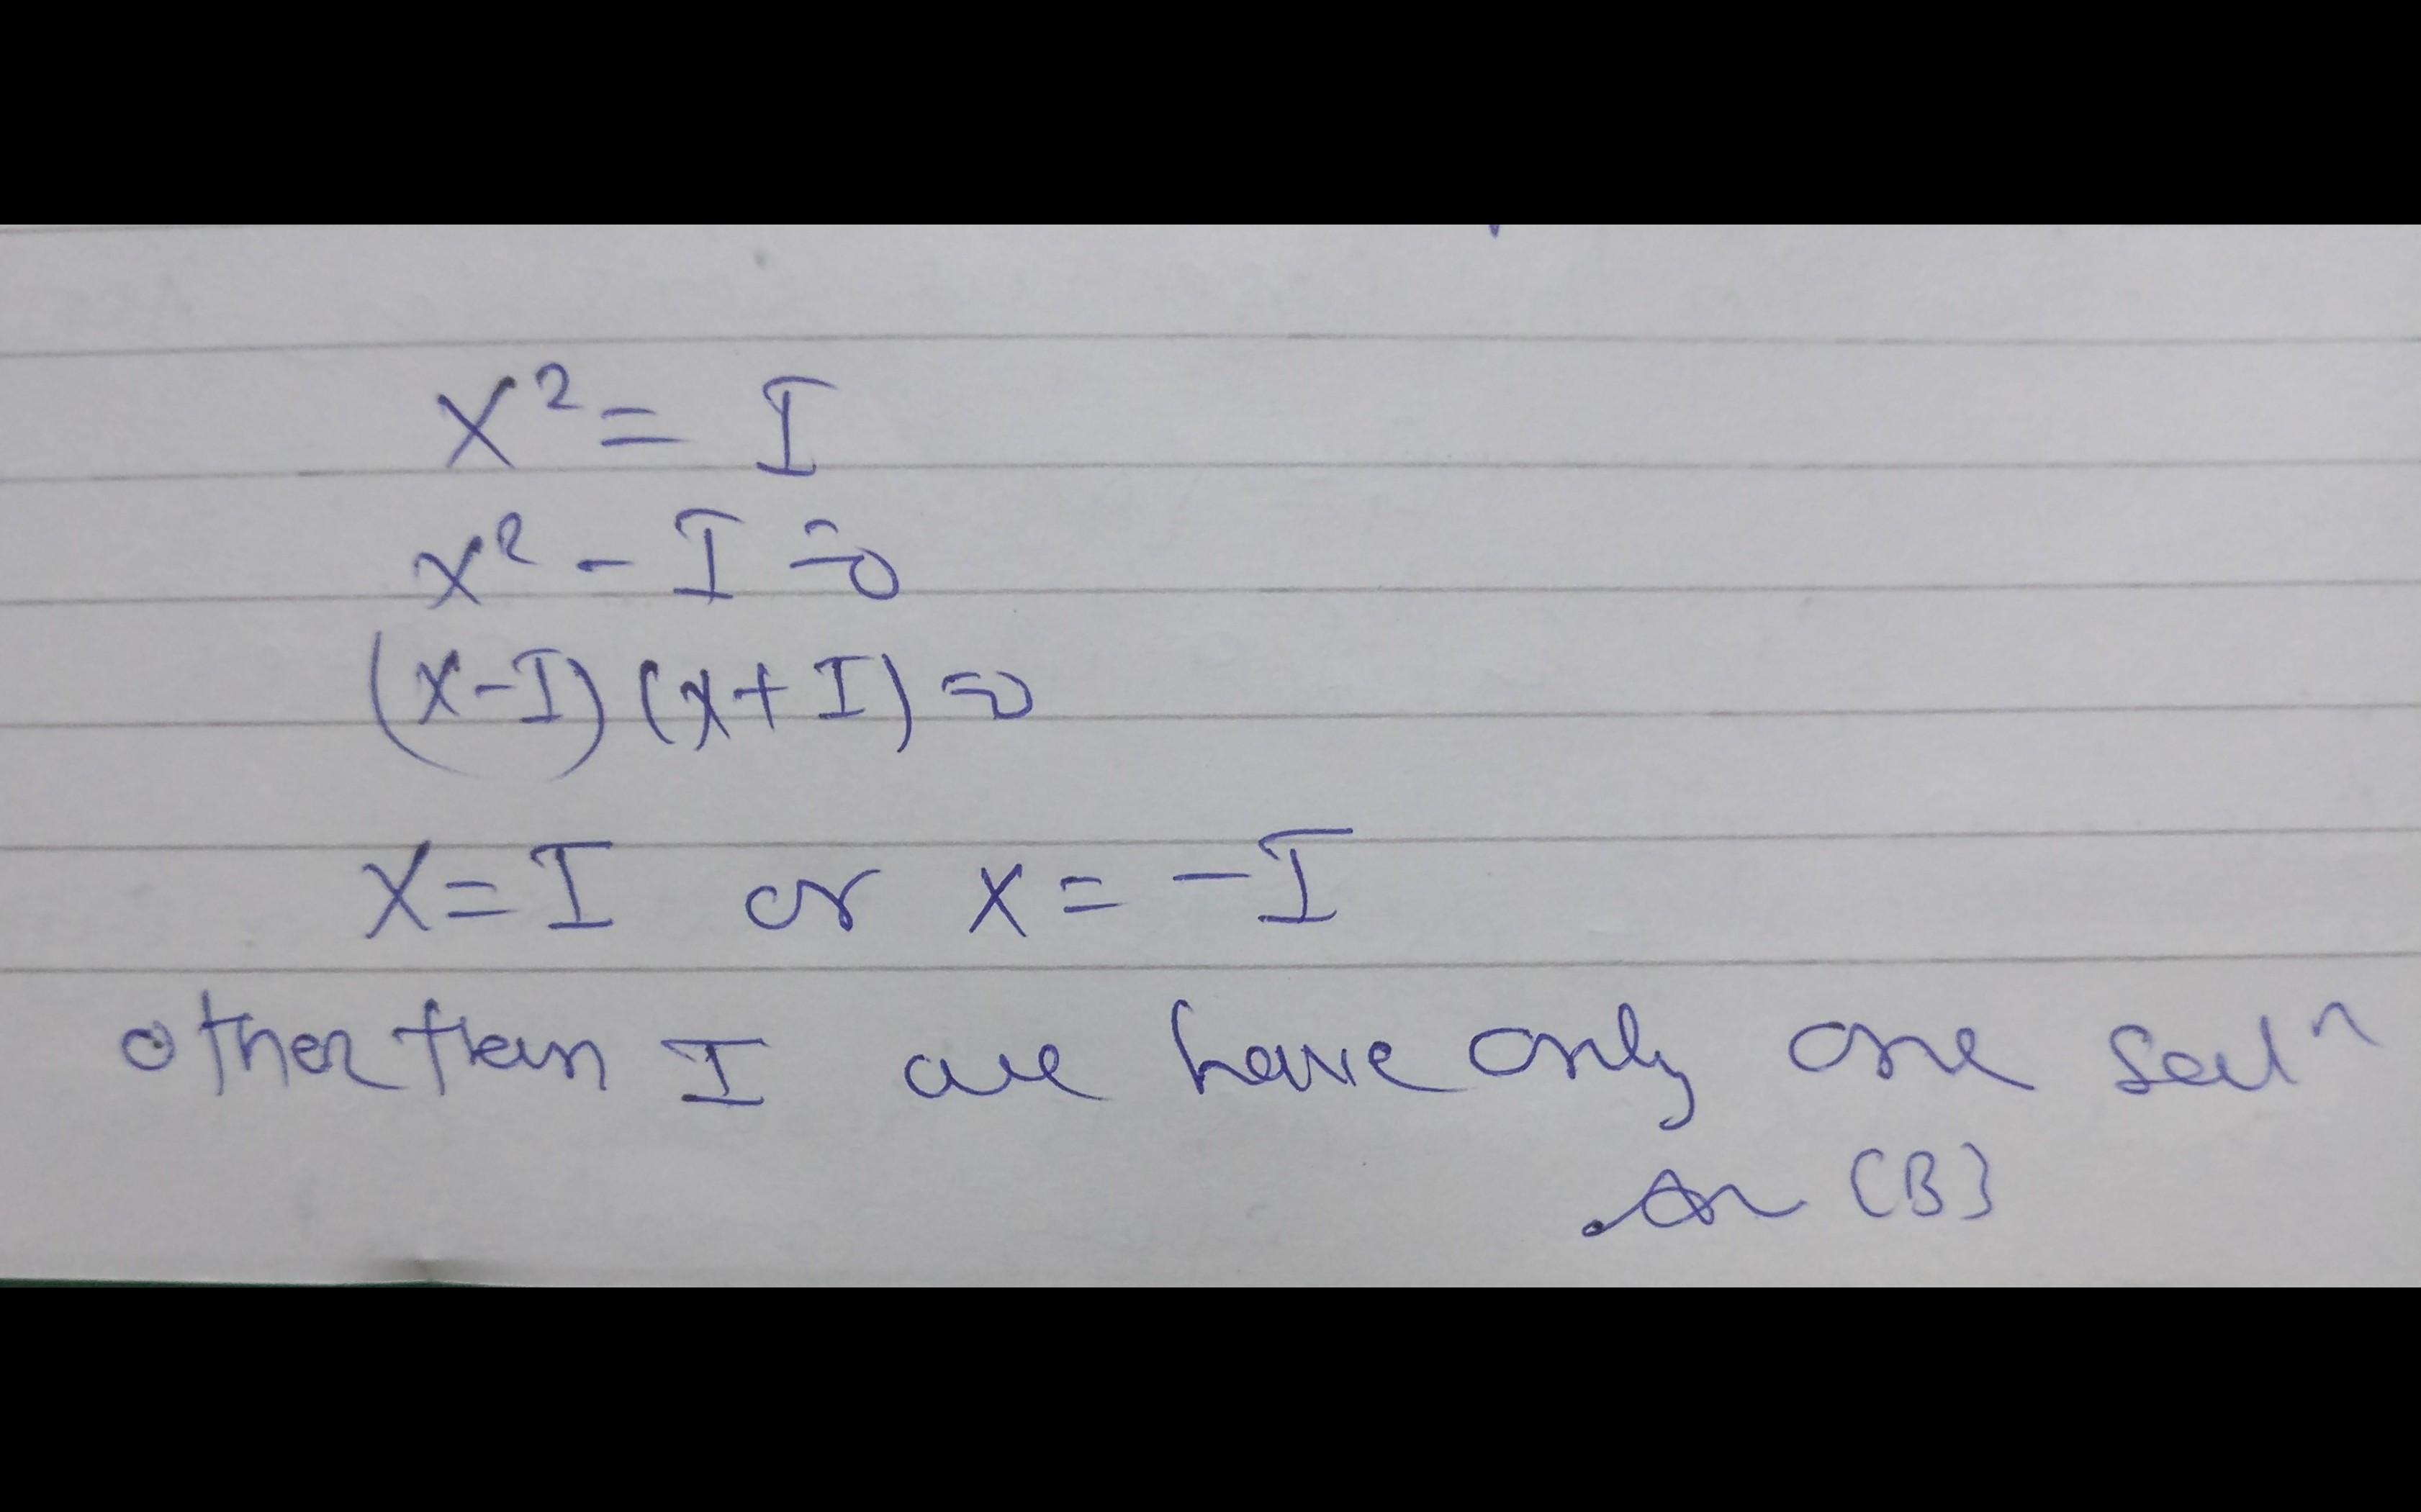 X² = I
x² - I = 0
(x-I) (x+I) = 0
X = I or x = -I
other than I are have only one sol^n
An (B)